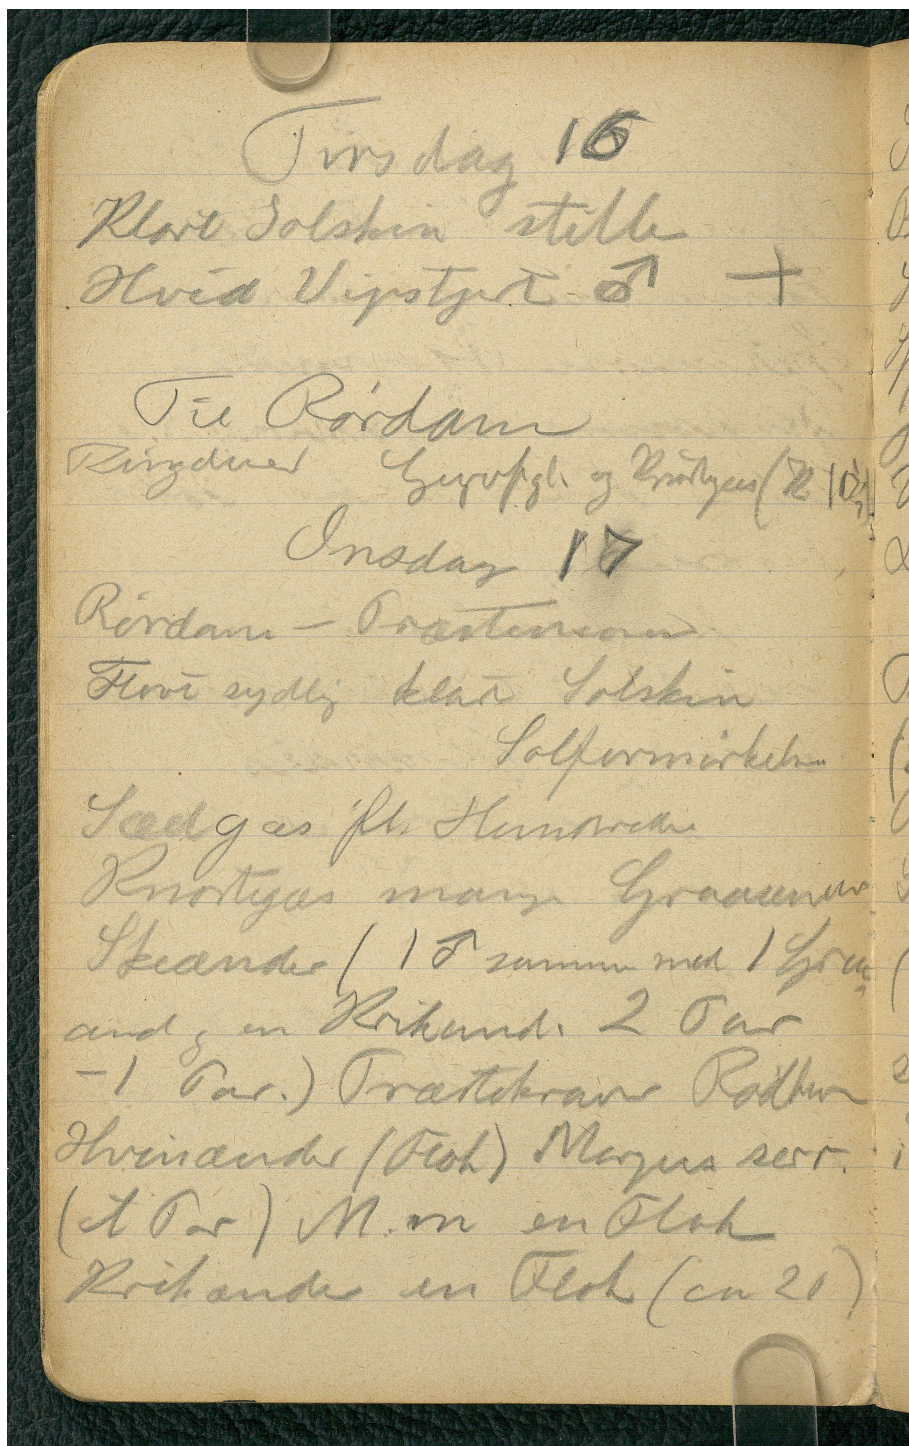 Tirsdag 16
Klart Solskin stille
Hvid Vipstjert ♂ +
Til Rørdam
Ringduer og Knortgæs (
Onsdag 17
Rørdam —
Flovt sydlig klart Solskin
Solformørkelse
Sædgæs fl. Hundrede
Knortegæs mange Graaænder
Skeænder (1 ♂ sammen med 1 Graa
and og en Krikand. 2 Par
- 1 Par.)
Hvinænder (Flok) Mergus serr.
(et Par) M. m en Flok
Krikænder en Flok (ca 20)